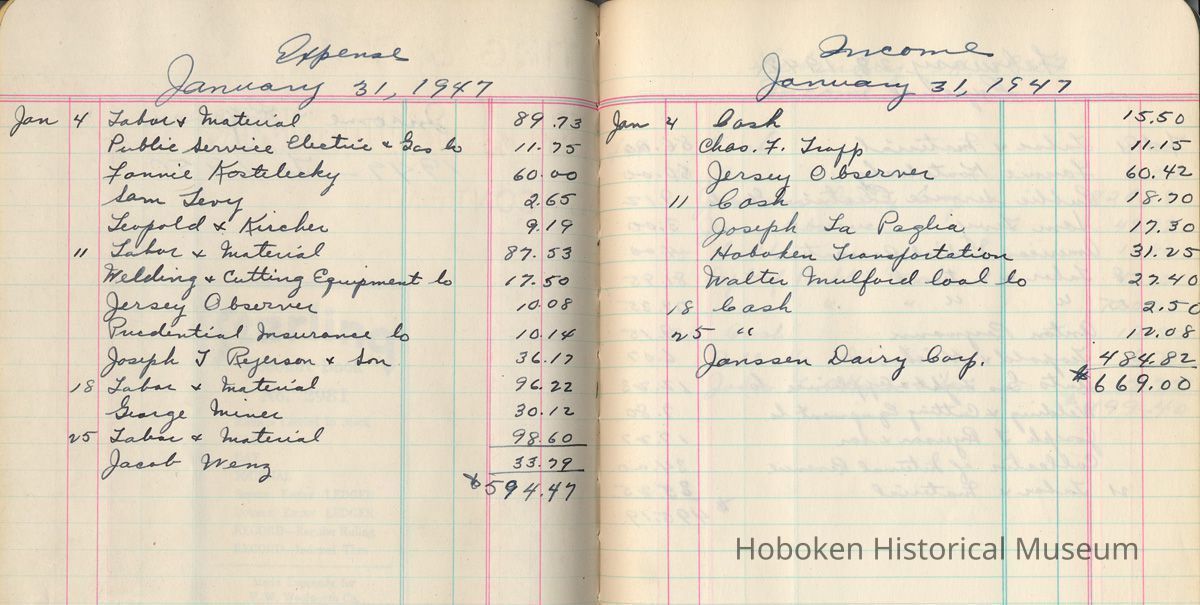 Expense
January 31, 1947
Jan 4 Labor & Material 89.73
Public Service Electric & Gas Co 11.75
Fannie Kostelecky 60.00
Sam Levy 2.65
Leopold & Kircher 9.19
11 Labor & Material 87.53
Welding & Cutting Equipment Co 17.50
Jersey Observer 10.08
Prudential Insurance Co 10.14
Joseph T Ryerson & Son 36.17
18 Labor & Material 96.22
George Miner 30.12
25 Labor & Material 98.60
Jacob Wenz 33.79
$594.47
Income
January 31, 1947
Jan 4 Cash 15.50
Chas. F. Trapp 11.15
Jersey Observer 60.42
11 Cash 18.70
Joseph La Paglia 17.30
Hoboken Transportation 31.25
Walter Mulford Coal Co 27.40
18 Cash 2.50
25 " 12.08
Janssen Dairy Corp. 484.82
$669.00
Hoboken Historical Museum